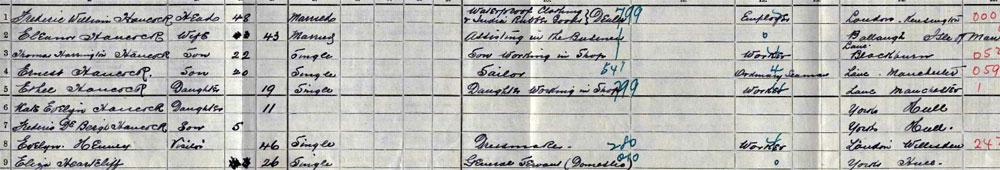 1 Frederic William Hancock Head 48 Married Waterproof Clothing & India Rubber Goods Dealer 799 Employer London Kensington 000
2 Eleanor Hancock Wife 43 Married Assisting in the Business 0 Ballaugh Isle of Man
3 Thomas Harrington Hancock Son 22 Single Son Working in Shop Worker Lanc. Blackburn
4 Ernest Hancock Son 20 Single Sailor 541 Ordinary Seaman Lanc. Manchester 059
5 Ethel Hancock Daughter 19 Single Daughter Working in Shop 799 Worker Lanc Manchester 1
6 Kate Evelyn Hancock Daughter 11 Yorks Hull
7 Frederic De Berge Hancock Son 5 Yorks Hull.
8 Evelyn Henney Visitor 46 Single Dressmaker 280 Worker London Willesden 24
9 Eliza 26 Single General Servant (Domestic) 0 Yorks Hull.